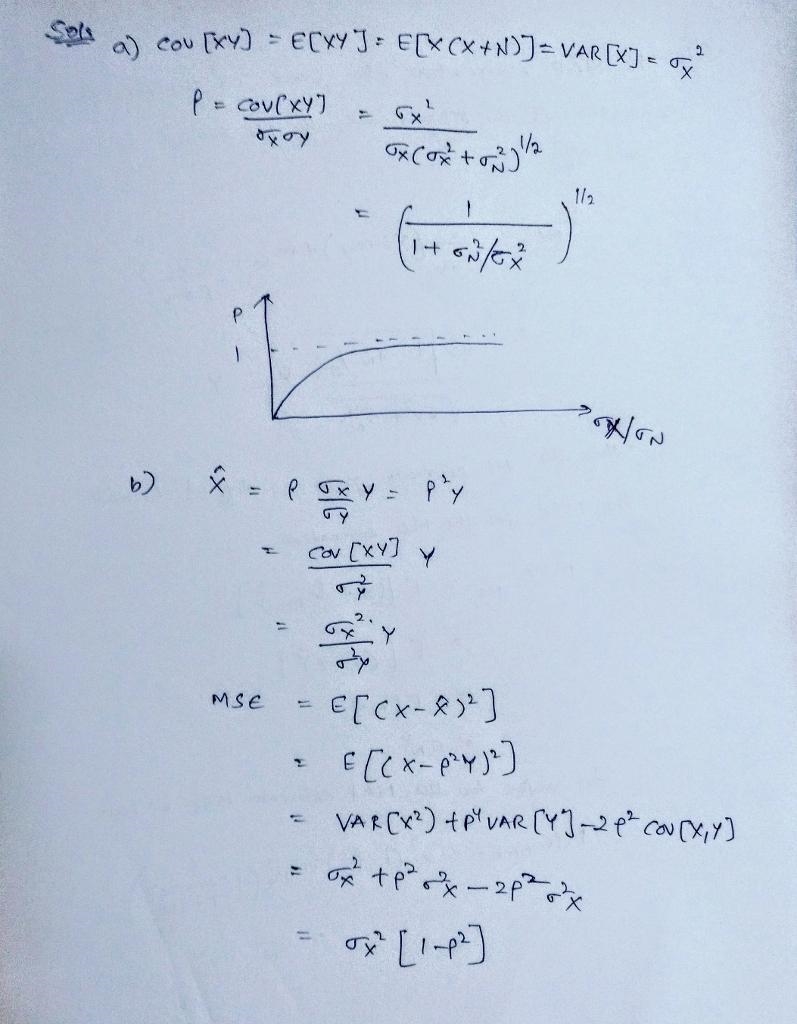 Soln a) COV [XY] = E[XY] = E[X(X+N)] = VAR[X] = σx²
ρ = COV[XY] / σxσy = σx² / σx(σx² + σN²)^1/2
= (1 / 1 + σN²/σx²)^1/2
ρ
1
σX/σN
b) x̂ = ρ σx/σy Y = ρ²Y
= COV [XY] / σ²y Y
= σx² / σ²y . Y
MSE = E[(X-x̂)²]
= E[(X-ρ²Y)²]
= VAR[X²) + ρ⁴ VAR[Y] - 2ρ² COV[X,Y]
= σx² + ρ² σ²x - 2ρ² σ²x
= σx² [1-ρ²]